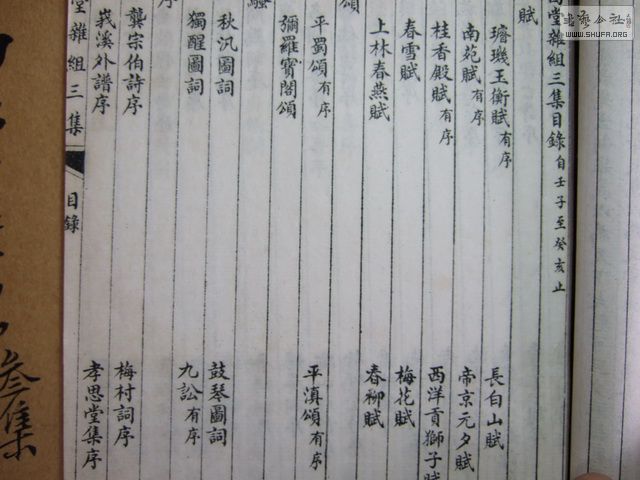 堂雜組三集目錄自壬子至癸亥止
賦
璿璣玉衡賦有序 長白山賦
南苑賦有序 帝京元夕賦
桂香殿賦有序 西洋貢獅子賦
春雪賦 梅花賦
上林春燕賦 春柳賦
頌
平蜀頌有序 平滇頌有序
彌羅寶閣頌
騷
秋汎圖詞 鼓琴圖詞
獨醒圖詞 九訟有序
序
龔宗伯詩序 梅村詞序
莪溪外譜序 孝思堂集序
堂雜組三集 目錄
叄集
WWW.SHUFA.ORG